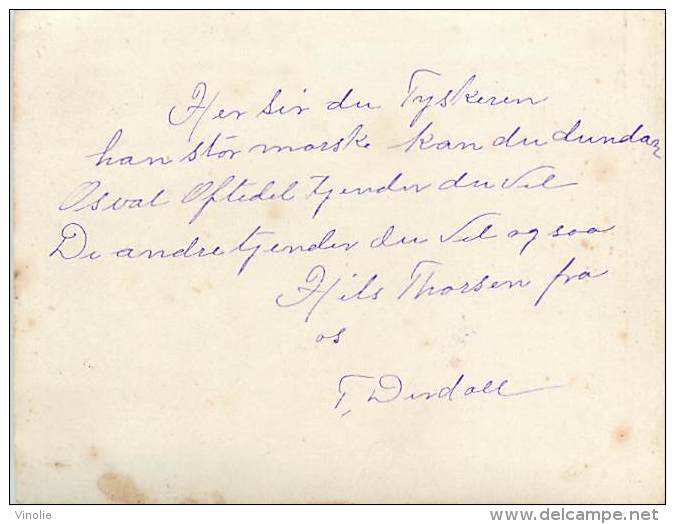 Her Sir du Tyskeren
han stor morske kan du dundar
Osval Oftedel tjender du Vel
De andre tjender du Vel og saa
Hils Thorsen fra
os
T. Dirdall
Vinolie
www.delcampe.net